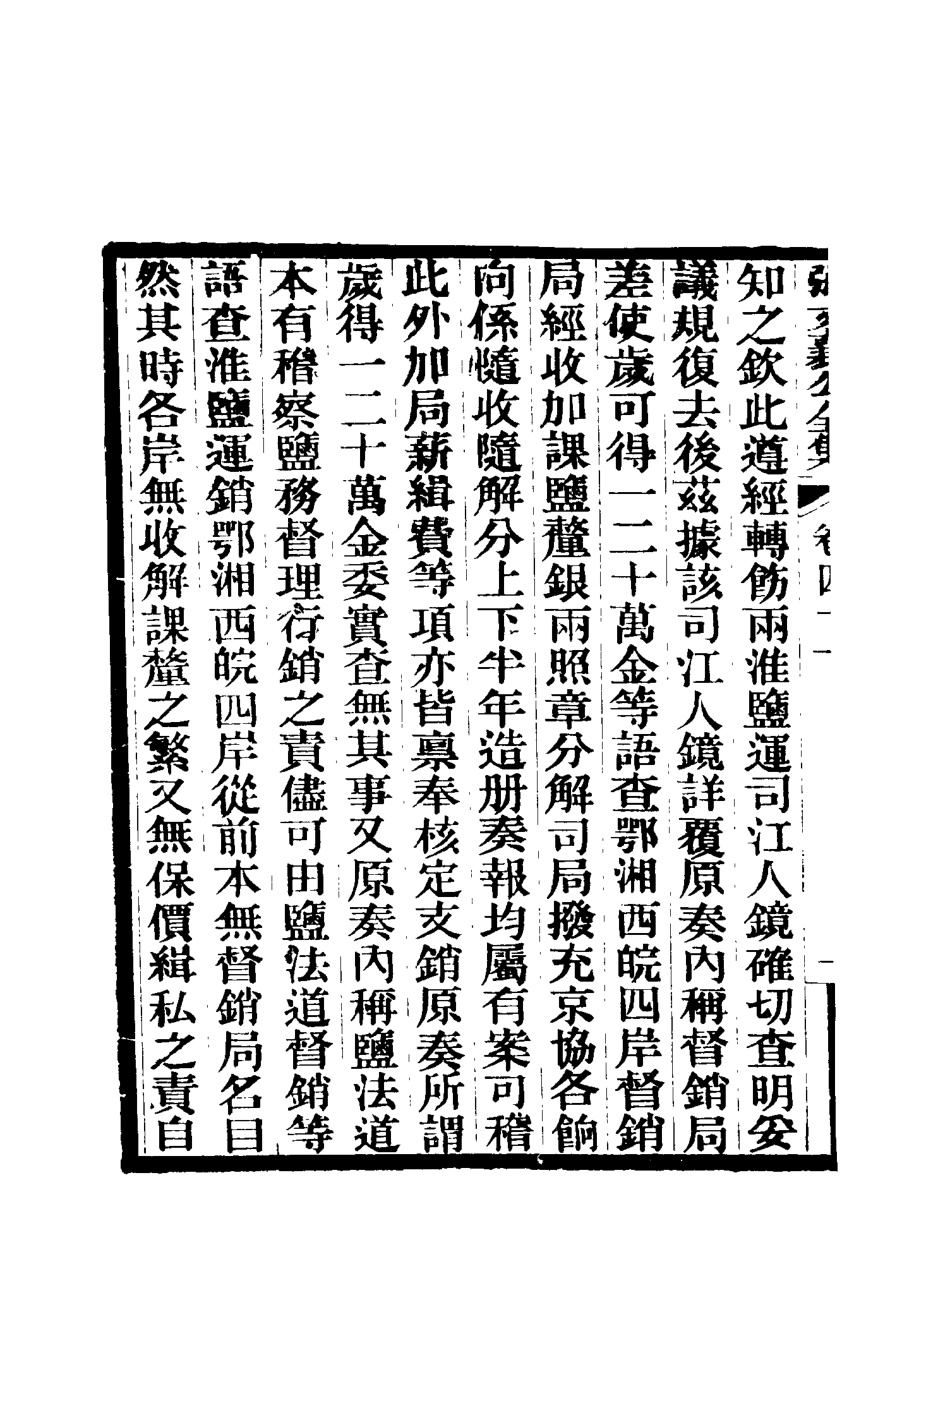 知之欽此遵經轉飭兩淮鹽運司江人鏡確切查明妥
議規復去後茲據該司江人鏡詳覆原奏內稱督銷局
差使歲可得一二十萬金等語查鄂湘西皖四岸督銷
局經收加課鹽釐銀兩照章分解司局撥充京協各餉
向係隨收隨解分上下半年造册奏報均屬有案可稽
此外加局薪緝費等項亦皆禀奉核定支銷原奏所謂
歲得一二十萬金委實查無其事又原奏內稱鹽法道
本有稽察鹽務督理行銷之責儘可由鹽法道督銷等
語查淮鹽運銷鄂湘西皖四岸從前本無督銷局名目
然其時各岸無收解課釐之繁又無保價緝私之責自